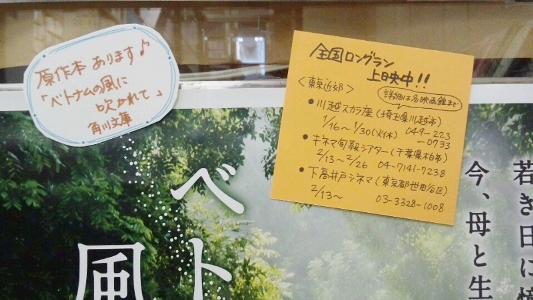 原作本あります♪
「ベトナムの風に
吹かれて」
角川文庫
全国ロングラン
上映中!!
詳細は各映画館まで
<東京近郊>
● 川越スカラ座(埼玉県川越市)
1/16~1/30(火休) 049-223
-0733
● キネマ旬報シアター(千葉県柏市)
2/13~2/26 04-7141-7238
● 下高井戸シネマ(東京都世田谷区)
2/13~ 03-3328-1008
ベト
風
若き日に
今、母と生